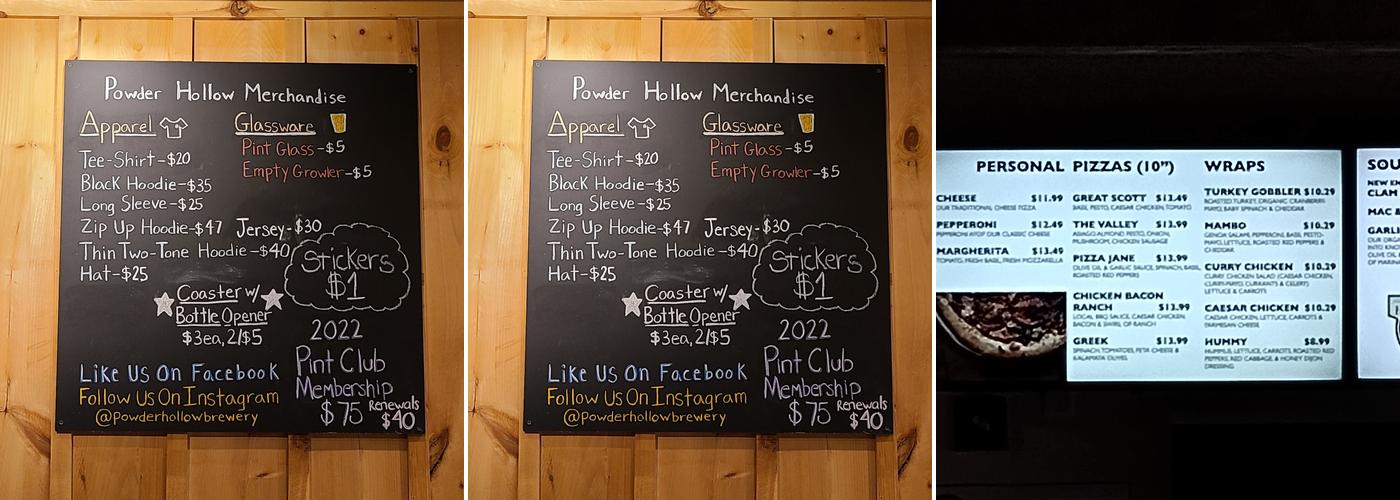 Powder Hollow Merchandise
Apparel
Glassware
Tee-Shirt-$20
Black Hoodie-$35
Long Sleeve-$25
Zip Up Hoodie-$47
Thin Two-Tone Hoodie-$40
Hat-$25
Pint Glass-$5
Empty Growler-$5
Jersey-$30
Stickers
$1
Coaster w/
Bottle Opener
$3ea, 2/$5
2022
Pint Club
Membership
$75
Renewals
$40
Like Us On Facebook
Follow Us On Instagram
@powderhollowbrewery
Powder Hollow Merchandise
Apparel
Glassware
Tee-Shirt-$20
Black Hoodie-$35
Long Sleeve-$25
Zip Up Hoodie-$47
Thin Two-Tone Hoodie-$40
Hat-$25
Pint Glass-$5
Empty Growler-$5
Jersey-$30
Stickers
$1
Coaster w/
Bottle Opener
$3ea, 2/$5
2022
Pint Club
Membership
$75
Renewals
$40
Like Us On Facebook
Follow Us On Instagram
@powderhollowbrewery
PERSONAL PIZZAS (10")
CHEESE $11.99
OUR TRADITIONAL CHEESE PIZZA
PEPPERONI $12.49
PEPPERONI ATOP OUR CLASSIC CHEESE
MARGHERITA $13.49
TOMATO, FRESH BASIL, FRESH MOZZARELLA
GREAT SCOTT $13.49
BASIL PESTO, CAESAR CHICKEN, TOMATO
THE VALLEY $13.99
ASIAGO ALMOND PESTO, ONION,
MUSHROOM, CHICKEN SAUSAGE
PIZZA JANE $13.99
OLIVE OIL & GARLIC SAUCE, SPINACH, BASIL,
ROASTED RED PEPPERS
CHICKEN BACON
RANCH $13.99
LOCAL BBQ SAUCE, CAESAR CHICKEN,
BACON & SWIRL OF RANCH
GREEK $13.99
SPINACH, TOMATOES, FETA CHEESE &
KALAMATA OLIVES
WRAPS
TURKEY GOBBLER $10.29
ROASTED TURKEY, ORGANIC CRANBERRY
MAYO, BABY SPINACH & CHEDDAR
MAMBO $10.29
GENOA SALAMI, PEPPERONI, BASIL PESTO-
MAYO, LETTUCE, ROASTED RED PEPPERS &
CHEDDAR
CURRY CHICKEN $10.29
CURRY CHICKEN SALAD (CAESAR CHICKEN,
CURRY-MAYO, CURRANTS & CELERY)
LETTUCE & CARROTS
CAESAR CHICKEN $10.29
CAESAR CHICKEN, LETTUCE, CARROTS &
PARMESAN CHEESE
HUMMY $8.99
HUMMUS, LETTUCE, CARROTS, ROASTED RED
PEPPERS, RED CABBAGE, & HONEY DIJON
DRESSING
SOU
NEW EN
CLAM
MAC &
GARLI